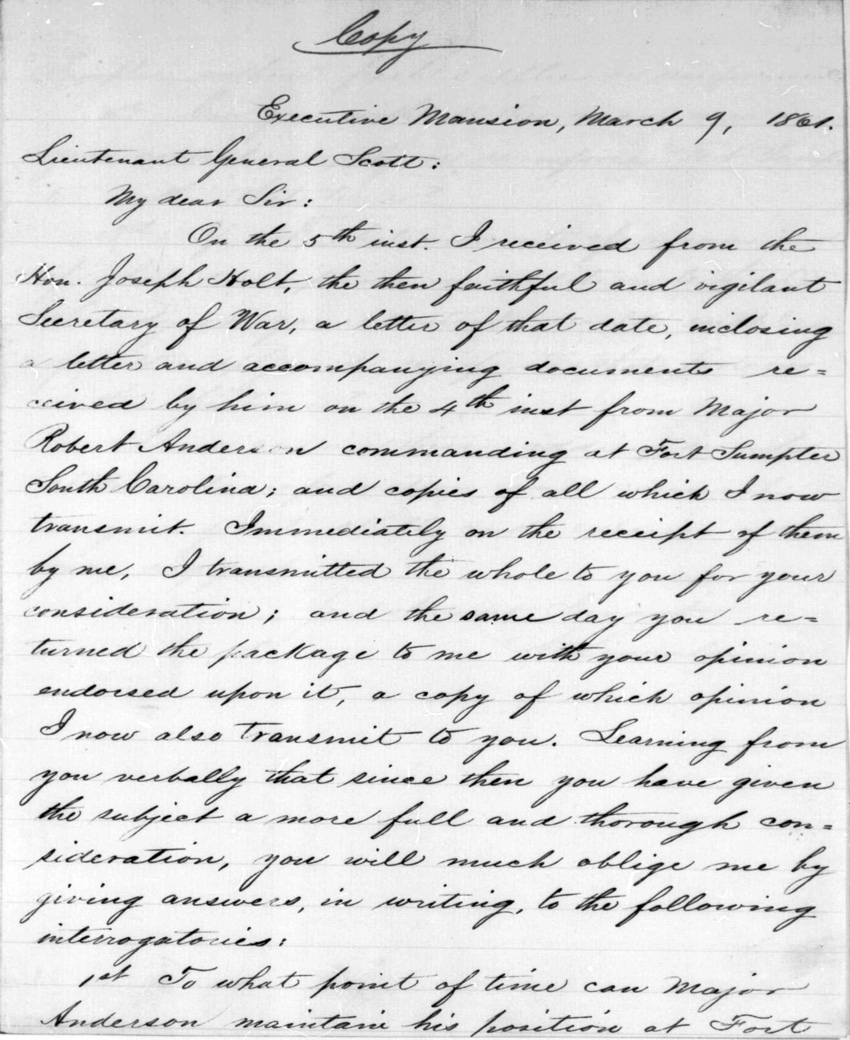 Copy
Executive Mansion, March 9, 1861.
Lieutenant General Scott:
My dear Sir:
On the 5th inst. I received from the
Hon. Joseph Holt, the then faithful and vigilant
Secretary of War, a letter of that date, inclosing
a letter and accompanying documents re=
ceived by him on the 4th inst from Major
Robert Anderson commanding at Fort Sumpter
South Carolina; and copies of all which I now
transmit. Immediately on the receipt of them
by me, I transmitted the whole to you for your
consideration; and the same day you re=
turned the package to me with your opinion
endorsed upon it, a copy of which opinion
I now also transmit to you. Learning from
you verbally that since then you have given
the subject a more full and thorough con=
sideration, you will much oblige me by
giving answers, in writing, to the following
interrogatories:
1st To what point of time can Major
Anderson maintain his position at Fort